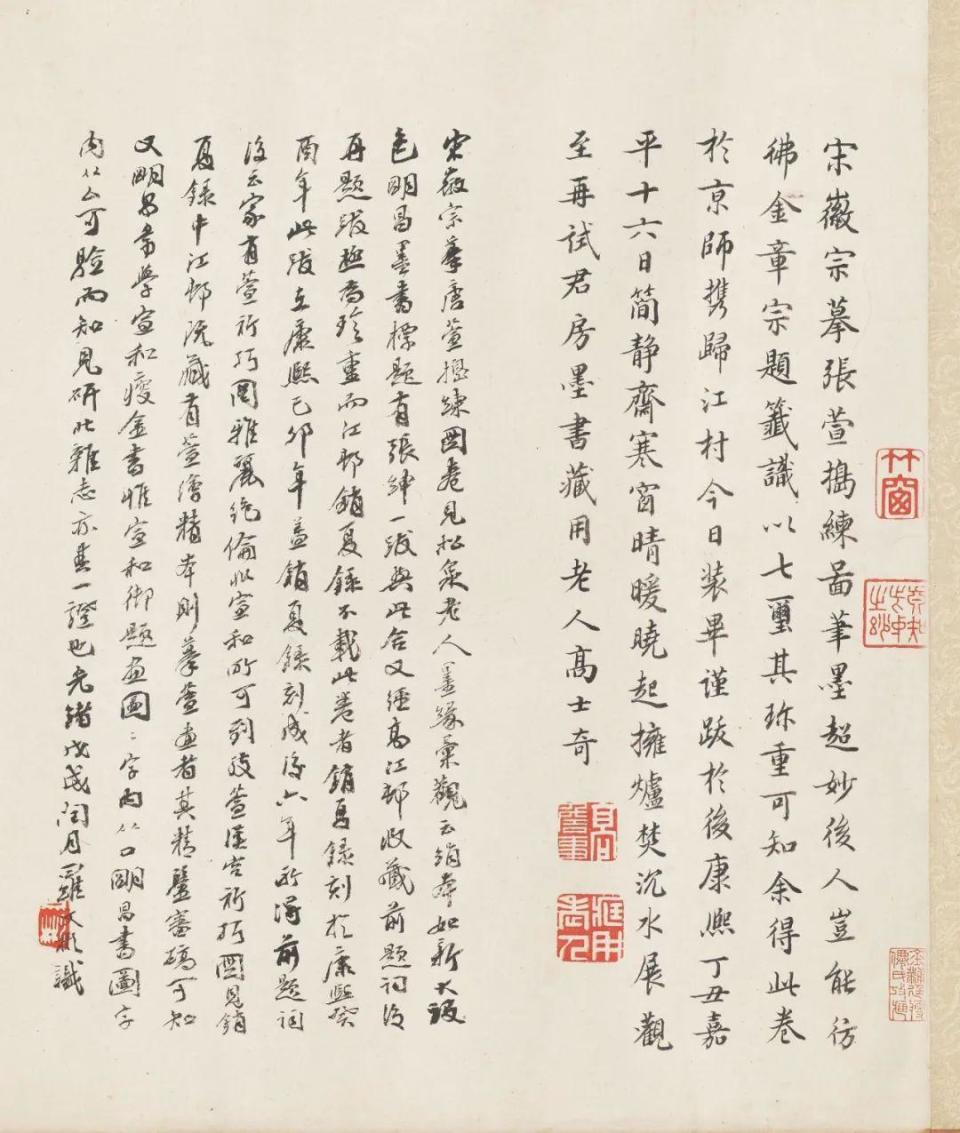 宋徽宗摹張萱搗練啚筆墨超妙後人豈能彷
彿金章宗題籤識以七璽其珎重可知余得此卷
於京師携歸江村今日裝畢謹跋於後康熙丁丑嘉
平十六日簡静齋寒窗晴暖曉起擁爐焚沉水展觀
至再試君房墨書藏用老人高士奇
宋徽宗摹唐萱搗練圖卷見松泉老人墨緣彙觀云絹本如新大設
色明昌墨書標題有張紳一跋與此合又經高江邨收藏前題詞後
再題跋極為珍重而江邨銷夏錄不載此卷者銷夏錄刻於康熙癸
酉年此跋在康熙己卯年蓋銷夏錄刻成後六年所得前題詞
後云家有萱祈巧圖雅麗絕倫非宣和所可到攷萱漢宮祈巧圖見銷
夏錄中江邨既藏有萱繪精本則摹萱畫者其精鑒審確可知
又明昌書學宣和瘦金書惟宣和御題畫圖圖字內从口明昌書圖字
內从厶可驗而知見研北雜志亦其一證也光緒戊戌閏月羅文彬識
竹窗